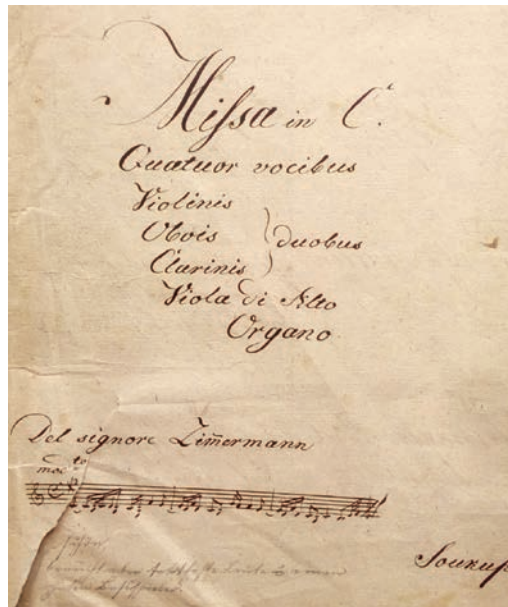 Missa in C.
Quatuor vocibus
Violinis
Obois
duobus
Clarinis
Viola di Alto
Organo
Del signore Zim̄ermann
Soukup